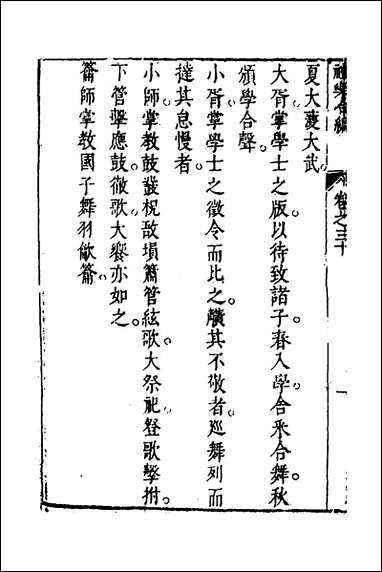 禮樂合編
卷之三十
一
夏大濩大武
大胥掌學士之版以待致諸子春入學舍采合舞秋
頒學合聲
小胥掌學士之徵令而比之觵其不敬者巡舞列而
撻其怠慢者
小師掌教鼓鼗柷敔塤簫管絃歌大祭祀登歌擊拊
下管擊應鼓徹歌大饗亦如之
籥師掌教國子舞羽龡籥